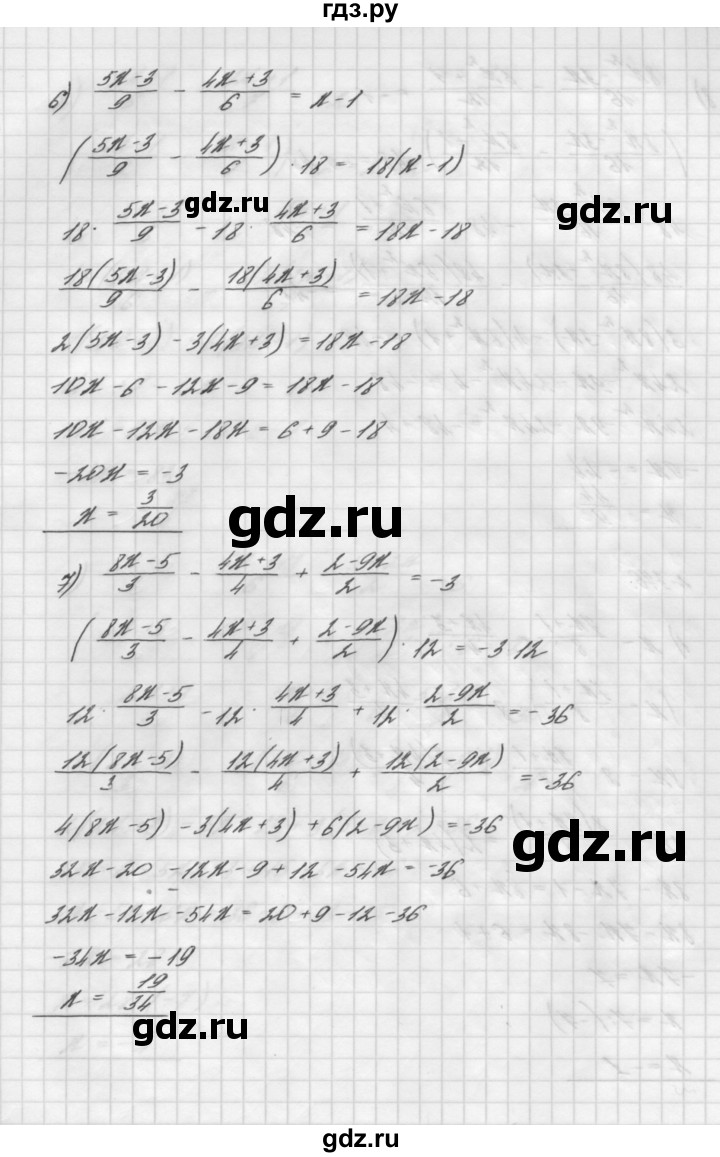 гдз.ру
6) (5x-3)/9 - (4x+3)/6 = x-1
((5x-3)/9 - (4x+3)/6) · 18 = 18(x-1)
gdz.ru
gdz.ru
18 · (5x-3)/9 - 18 · (4x+3)/6 = 18x-18
18(5x-3)/9 - 18(4x+3)/6 = 18x-18
2(5x-3) - 3(4x+3) = 18x-18
10x-6 - 12x-9 = 18x-18
10x-12x-18x = 6+9-18
-20x = -3
x = 3/20
gdz.ru
7) (8x-5)/3 - (4x+3)/4 + (2-9x)/2 = -3
((8x-5)/3 - (4x+3)/4 + (2-9x)/2) · 12 = -3 12
12 · (8x-5)/3 - 12 · (4x+3)/4 + 12 · (2-9x)/2 = -36
12(8x-5)/3 - 12(4x+3)/4 + 12(2-9x)/2 = -36
4(8x-5) - 3(4x+3) + 6(2-9x) = -36
gdz.ru
32x-20 -12x-9+12 -54x = -36
32x-12x-54x = 20+9-12-36
-34x = -19
x = 19/34
gdz.ru
gdz.ru